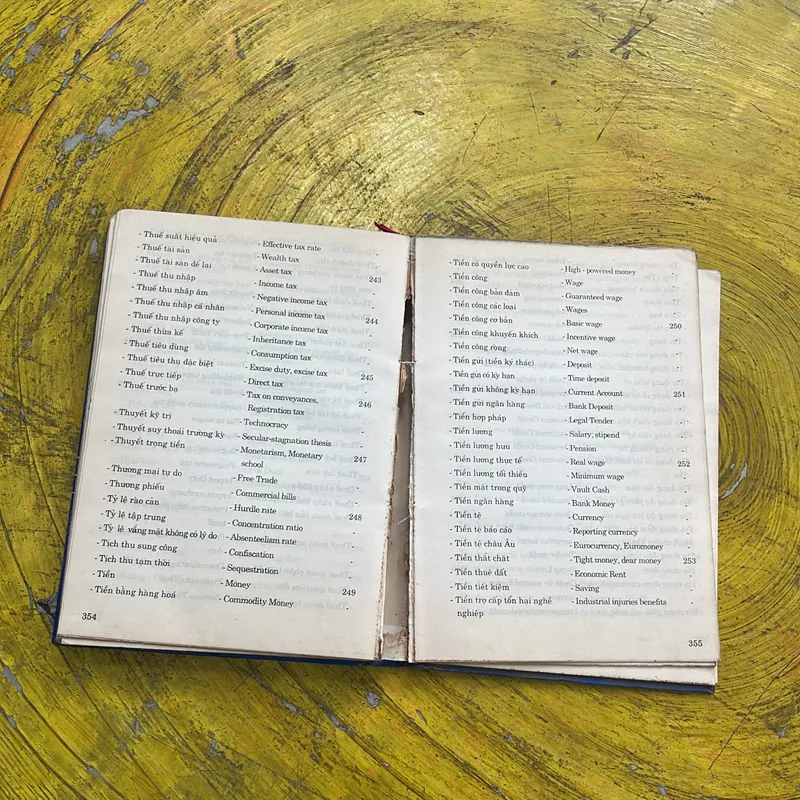 - Thuế suất hiệu quả - Effective tax rate -
- Thuế tài sản - Wealth tax -
- Thuế tài sản để lại - Asset tax 243
- Thuế thu nhập - Income tax -
- Thuế thu nhập âm - Negative income tax -
- Thuế thu nhập cá nhân - Personal income tax 244
- Thuế thu nhập công ty - Corporate income tax -
- Thuế thừa kế - Inheritance tax -
- Thuế tiêu dùng - Consumption tax -
- Thuế tiêu thụ đặc biệt - Excise duty, excise tax 245
- Thuế trực tiếp - Direct tax -
- Thuế trước bạ - Tax on conveyances, 246
Registration tax
- Thuyết kỹ trị - Technocracy -
- Thuyết suy thoái trường kỳ - Secular-stagnation thesis -
- Thuyết trọng tiền - Monetarism, Monetary 247
school
- Thương mại tự do - Free Trade -
- Thương phiếu - Commercial bills -
- Tỷ lệ rào cản - Hurdle rate 248
- Tỷ lệ tập trung - Concentration ratio -
- Tỷ lệ vắng mặt không có lý do - Absenteelism rate -
- Tịch thu sung công - Confiscation -
- Tịch thu tạm thời - Sequestration -
- Tiền - Money 249
- Tiền bằng hàng hoá - Commodity Money -
354
- Tiền có quyền lực cao - High - powered money -
- Tiền công - Wage -
- Tiền công bảo đảm - Guaranteed wage -
- Tiền công các loại - Wages -
- Tiền công cơ bản - Basic wage 250
- Tiền công khuyến khích - Incentive wage -
- Tiền công ròng - Net wage -
- Tiền gửi (tiền ký thác) - Deposit -
- Tiền gửi có kỳ hạn - Time deposit -
- Tiền gửi không kỳ hạn - Current Account 251
- Tiền gửi ngân hàng - Bank Deposit -
- Tiền hợp pháp - Legal Tender -
- Tiền lương - Salary, stipend -
- Tiền lương hưu - Pension -
- Tiền lương thực tế - Real wage 252
- Tiền lương tối thiểu - Minimum wage -
- Tiền mặt trong quỹ - Vault Cash -
- Tiền ngân hàng - Bank Money -
- Tiền tệ - Currency -
- Tiền tệ báo cáo - Reporting currency -
- Tiền tệ châu Âu - Eurocurrency, Euromoney -
- Tiền thắt chặt - Tight money, dear money 253
- Tiền thuê đất - Economic Rent -
- Tiền tiết kiệm - Saving -
- Tiền trợ cấp tổn hại nghề - Industrial injuries benefits -
nghiệp
355